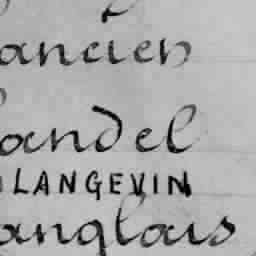 ancien
andel
LANGEVIN
anglais